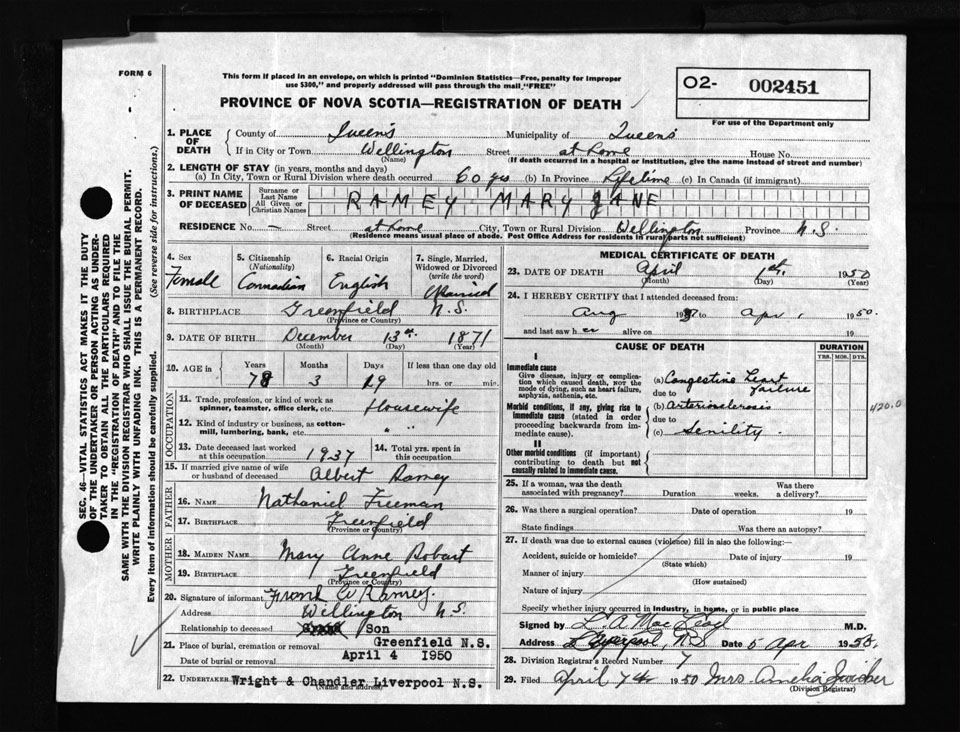 FORM 6
This form if placed in an envelope, on which is printed "Dominion Statistics—Free, penalty for improper
use $300," and properly addressed will pass through the mail "FREE"
PROVINCE OF NOVA SCOTIA—REGISTRATION OF DEATH
O2- 002451
For use of the Department only
SEC. 46—VITAL STATISTICS ACT MAKES IT THE DUTY
OF THE UNDERTAKER OR PERSON ACTING AS UNDER-
TAKER TO OBTAIN ALL THE PARTICULARS REQUIRED
IN THE "REGISTRATION OF DEATH" AND TO FILE THE
SAME WITH THE DIVISION REGISTRAR WHO SHALL ISSUE THE BURIAL PERMIT.
WRITE PLAINLY WITH UNFADING INK. THIS IS A PERMANENT RECORD.
Every item of information should be carefully supplied. (See reverse side for instructions.)
1. PLACE OF DEATH
County of Queens Municipality of Queens
If in City or Town Wellington Street at home House No.
(Name) (If death occurred in a hospital or institution, give the name instead of street and number)
2. LENGTH OF STAY (in years, months and days)
(a) In City, Town or Rural Division where death occurred 60 yrs (b) In Province Lifetime (c) In Canada (if immigrant)
3. PRINT NAME OF DECEASED
Surname or Last Name
All Given or Christian Names
RAMEY MARY JANE
RESIDENCE No. — Street at home City, Town or Rural Division Wellington Province N.S.
(Residence means usual place of abode. Post Office Address for residents in rural parts not sufficient)
4. Sex
Female
5. Citizenship
(Nationality)
Canadian
6. Racial Origin
English
7. Single, Married,
Widowed or Divorced
(write the word)
Married
8. BIRTHPLACE Greenfield N.S.
(Province or Country)
9. DATE OF BIRTH December 13th 1871
(Month) (Day) (Year)
10. AGE in
Years Months Days If less than one day old
78 3 19 hrs. or min.
OCCUPATION
11. Trade, profession, or kind of work as
spinner, teamster, office clerk, etc. Housewife
12. Kind of industry or business, as cotton-
mill, lumbering, bank, etc. " "
13. Date deceased last worked
at this occupation 1937
14. Total yrs. spent in
this occupation
15. If married give name of wife
or husband of deceased Albert Ramey
FATHER
16. NAME Nathaniel Freeman
17. BIRTHPLACE Greenfield
(Province or Country)
MOTHER
18. MAIDEN NAME Mary Anne Robart
19. BIRTHPLACE Greenfield
(Province or Country)
20. Signature of informant Frank W Ramey.
Address Wellington N.S.
Relationship to deceased Son
21. Place of burial, cremation or removal Greenfield N.S.
Date of burial or removal April 4 1950
22. UNDERTAKER Wright & Chandler Liverpool N.S.
(Name and Address)
MEDICAL CERTIFICATE OF DEATH
23. DATE OF DEATH April 1st 1950
(Month) (Day) (Year)
24. I HEREBY CERTIFY that I attended deceased from:
Aug 19 to Apr 1 1950.
and last saw her alive on 19
CAUSE OF DEATH
DURATION
YRS. MOS. DYS.
I
Immediate cause
Give disease, injury or complica-
tion which caused death, NOT the
mode of dying, such as heart failure,
asphyxia, asthenia, etc.
(a) Congestive heart failure
due to
Morbid conditions, if any, giving rise to
immediate cause (stated in order
proceeding backwards from im-
mediate cause).
(b) Arteriosclerosis
due to
(c) Senility.
420.0
II
Other morbid conditions (if important)
contributing to death but not causally
related to immediate cause.
25. If a woman, was the death
associated with pregnancy? Duration weeks. Was there
a delivery?
26. Was there a surgical operation? Date of operation 19
State findings Was there an autopsy?
27. If death was due to external causes (violence) fill in also the following:—
Accident, suicide or homicide? Date of injury 19
(State which)
Manner of injury
(How sustained)
Nature of injury
Specify whether injury occurred in industry, in home, or in public place
Signed by L. A. MacLeod M.D.
Address Liverpool, N.S. Date 5 Apr 1950.
28. Division Registrar's Record Number 7
29. Filed April 7th 1950 Mrs. Amelia
(Division Registrar)